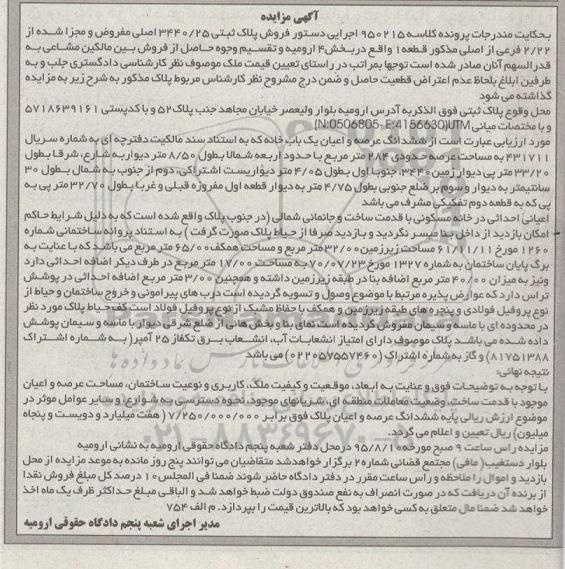 آگهی مزایده
بحکایت مندرجات پرونده کلاسه ۹۵۰۲۱۵ اجرایی دستور فروش پلاک ثبتی ۳۴۴۰/۲۵ اصلی مفروض و مجزا شده از
۲/۲۲ فرعی از اصلی مذکور قطعه ۱ واقع در بخش۴ ارومیه و تقسیم وجوه حاصل از فروش بین مالکین مشاعی به
قدر السهم آنان صادر شده است توجها بمراتب در راستای تعیین قیمت ملک موصوف نظر کارشناسی دادگستری جلب و به
طرفین ابلاغ بلحاظ عدم اعتراض قطعیت حاصل و ضمن درج مشروح نظر کارشناس مربوط پلاک مذکور به شرح زیر به مزایده
گذاشته می شود
محل وقوع پلاک ثبتی فوق الذکر به آدرس ارومیه بلوار ولیعصر خیابان مجاهد جنب پلاک۵۲ و با کدپستی ۵۷۱۸۶۳۹۱۶۱
و با مختصات میانی UTM(N:0506805- E:4156630)
مورد ارزیابی عبارت است از ششدانگ عرصه و اعیان یک باب خانه که به استناد سند مالکیت دفترچه ای به شماره سریال
۴۳۱۷۱۱ به مساحت عرصه حدودی ۲۸۴ متر مربع با حدود اربعه شمالا بطول ۸/۵۰ متر دیوار به شارع، شرقا بطول
۳۳/۲۰ متر پی دیوار زمین ۳۴۴۰، جنوبا اول بطول ۴/۰۵ متر دیواریست اشتراکی، دوم از جنوب به شمال بطول ۳۰
سانتیمتر به دیوار و سوم بر ضلع جنوبی بطول ۴/۷۵ متر به دیوار قطعه اول مفروزه قبلی و غربا بطول ۳۲/۷۰ متر پی به
پی که به قطعه دوم تفکیکی مشرف می باشد
اعیانی احداثی در خانه مسکونی با قدمت ساخت و جانمائی شمالی (در جنوب پلاک واقع شده است که به دلیل شرایط حاکم
امکان بازدید از داخل بنا میسر نگردید و بازدید صرفا از حیاط پلاک صورت گرفت ) به استناد پروانه ساختمانی شماره
۱۲۶۰ مورخ ۶۱/۱۱/۱۱ مساحت زیرزمین ۳۲/۰۰ متر مربع و مساحت همکف ۶۵/۰۰ متر مربع می باشد که با عنایت به
برگ پایان ساختمان به شماره ۱۳۲۷ مورخ ۷۰/۰۷/۲۳ به مساحت ۱۷/۰۰ متر مربع در طرف دیگر اضافه احداثی دارد
ونیز به میزان ۴۰/۰۰ متر مربع اضافه بنا در طبقه زیرزمین داشته و همچنین ۳/۰۰ متر مربع اضافه احداثی در پوشش
تراس دارد که عوارض پذیره مرتبط با موضوع وصول و تسویه گردیده است درب های پیرامونی و خروج ساختمان و حیاط از
نوع پروفیل فولادی و پنجره های طبقه زیرزمین و همکف با حفاظ مشبک از نوع پروفیل فولاد است کف حیاط پلاک مورد نظر
در محدوده ای با ماسه و سیمان مفروش گردیده است نمای بنا و بخش هائی از ضلع شرقی دیوار با ماسه و سیمان پوشش
داده شده می باشد پلاک موصوف دارای امتیاز انشعابات آب، انشعاب برق تکفاز ۲۵ آمپر( به شماره اشتراک
۸۱۷۵۱۳۸۸) و گاز به شماره اشتراک (۰۲۲۰۵۷۵۵۷۴۶۰) می باشد
نتیجه نهائی:
با توجه به توضیحات فوق و عنایت به ابعاد، موقعیت و کیفیت ملک، کاربری و نوعیت ساختمان، مساحت عرصه و اعیان
موجود با قدمت ساخت، وضعیت معاملات منطقه ای، شریانهای موجود، نحوه دسترسی به شوارع، و سایر عوامل موثر در
موضوع ارزش ریالی پایه ششدانگ عرصه و اعیان پلاک فوق برابر ۷/۲۵۰/۰۰۰/۰۰۰ ( هفت میلیارد و دویست و پنجاه
میلیون) ریال تعیین و اعلام می گردد.
مزایده راس ساعت ۹ صبح مورخه ۹۵/۸/۱۰ در محل دفتر شعبه پنجم دادگاه حقوقی ارومیه به نشانی ارومیه
بلوار دستغیب( مافی) مجتمع قضائی شماره۲ برگزار خواهد شد متقاضیان می توانند پنج روز مانده به موعد مزایده از محل
بازدید و اموال را ملاحظه و راس ساعت مقرر در دفتر دادگاه حاضر شوند ضمنا فی المجلس ۱۰ درصد کل مبلغ فروش نقدا
از برنده آن دریافت که در صورت انصراف به نفع صندوق دولت ضبط خواهد شد و الباقی مبلغ حداکثر ظرف یک ماه اخذ
خواهد شد ضمنا مال متعلق به کسی خواهد بود که بالاترین قیمت را بپردازد. م الف ۷۵۴
مدیر اجرای شعبه پنجم دادگاه حقوقی ارومیه